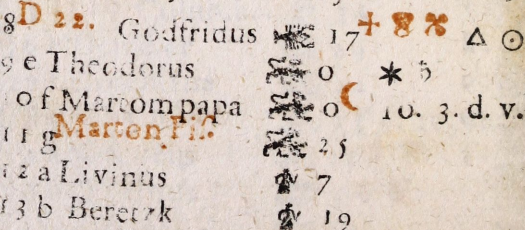 8 D 22. Godfridus 17 + △ ☉
9 e Theodorus 0 ✶ ♄
10 f Martompapa 0 ☾ 10. 3. d. v.
11 g Marton Piſ. 25
12 a Livinus 7
13 b Beretzk 19